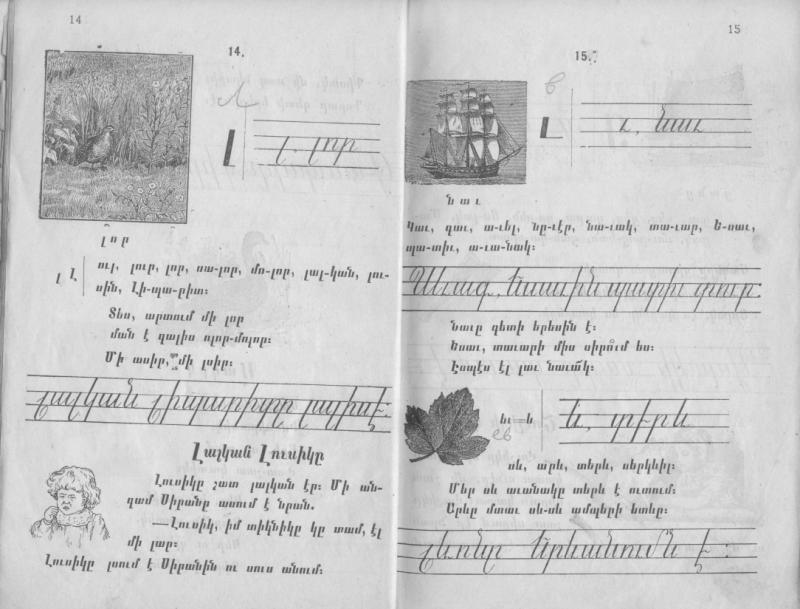 14
14.
լ
լ. լոր
լոր
լ Լ
ուլ, լուր, լոր, սա-լոր, մո-լոր, լալ-կան, լու-
սին, Լի-պա-րիտ:
Տես, արտում մի լոր
ման է գալիս ոլոր-մոլոր:
Մի ասիր, մի լռիր:
Լալկան Լուսիկը
Լուսիկը շատ լալկան էր: Մի ան-
գամ Սիրանը ասում է նրան.
—Լուսիկ, իմ տիկնիկը կը տամ, էլ
մի լար:
Լուսիկը լսում է Սիրանին ու սուս անում:
15
15.
վ
ւ
ւ, նաւ
նաւ
Կաւ, ցաւ, ա-ւել, նը-ւէր, նա-ւակ, տա-ւար, Ե-սաւ,
պա-տիւ, ա-ւա-նակ:
Նաւը գետի երեսին է:
Եսաւ, տաւարի միս սիրում ես:
Էսպէս էլ լաւ նաւակ:
եւ=և
և, տէրև
սև, արև, տերև, սերկևիլ:
Մեր սև աւանակը տերև է ուտում:
Արևը մտաւ սև-սև ամպերի ետևը: